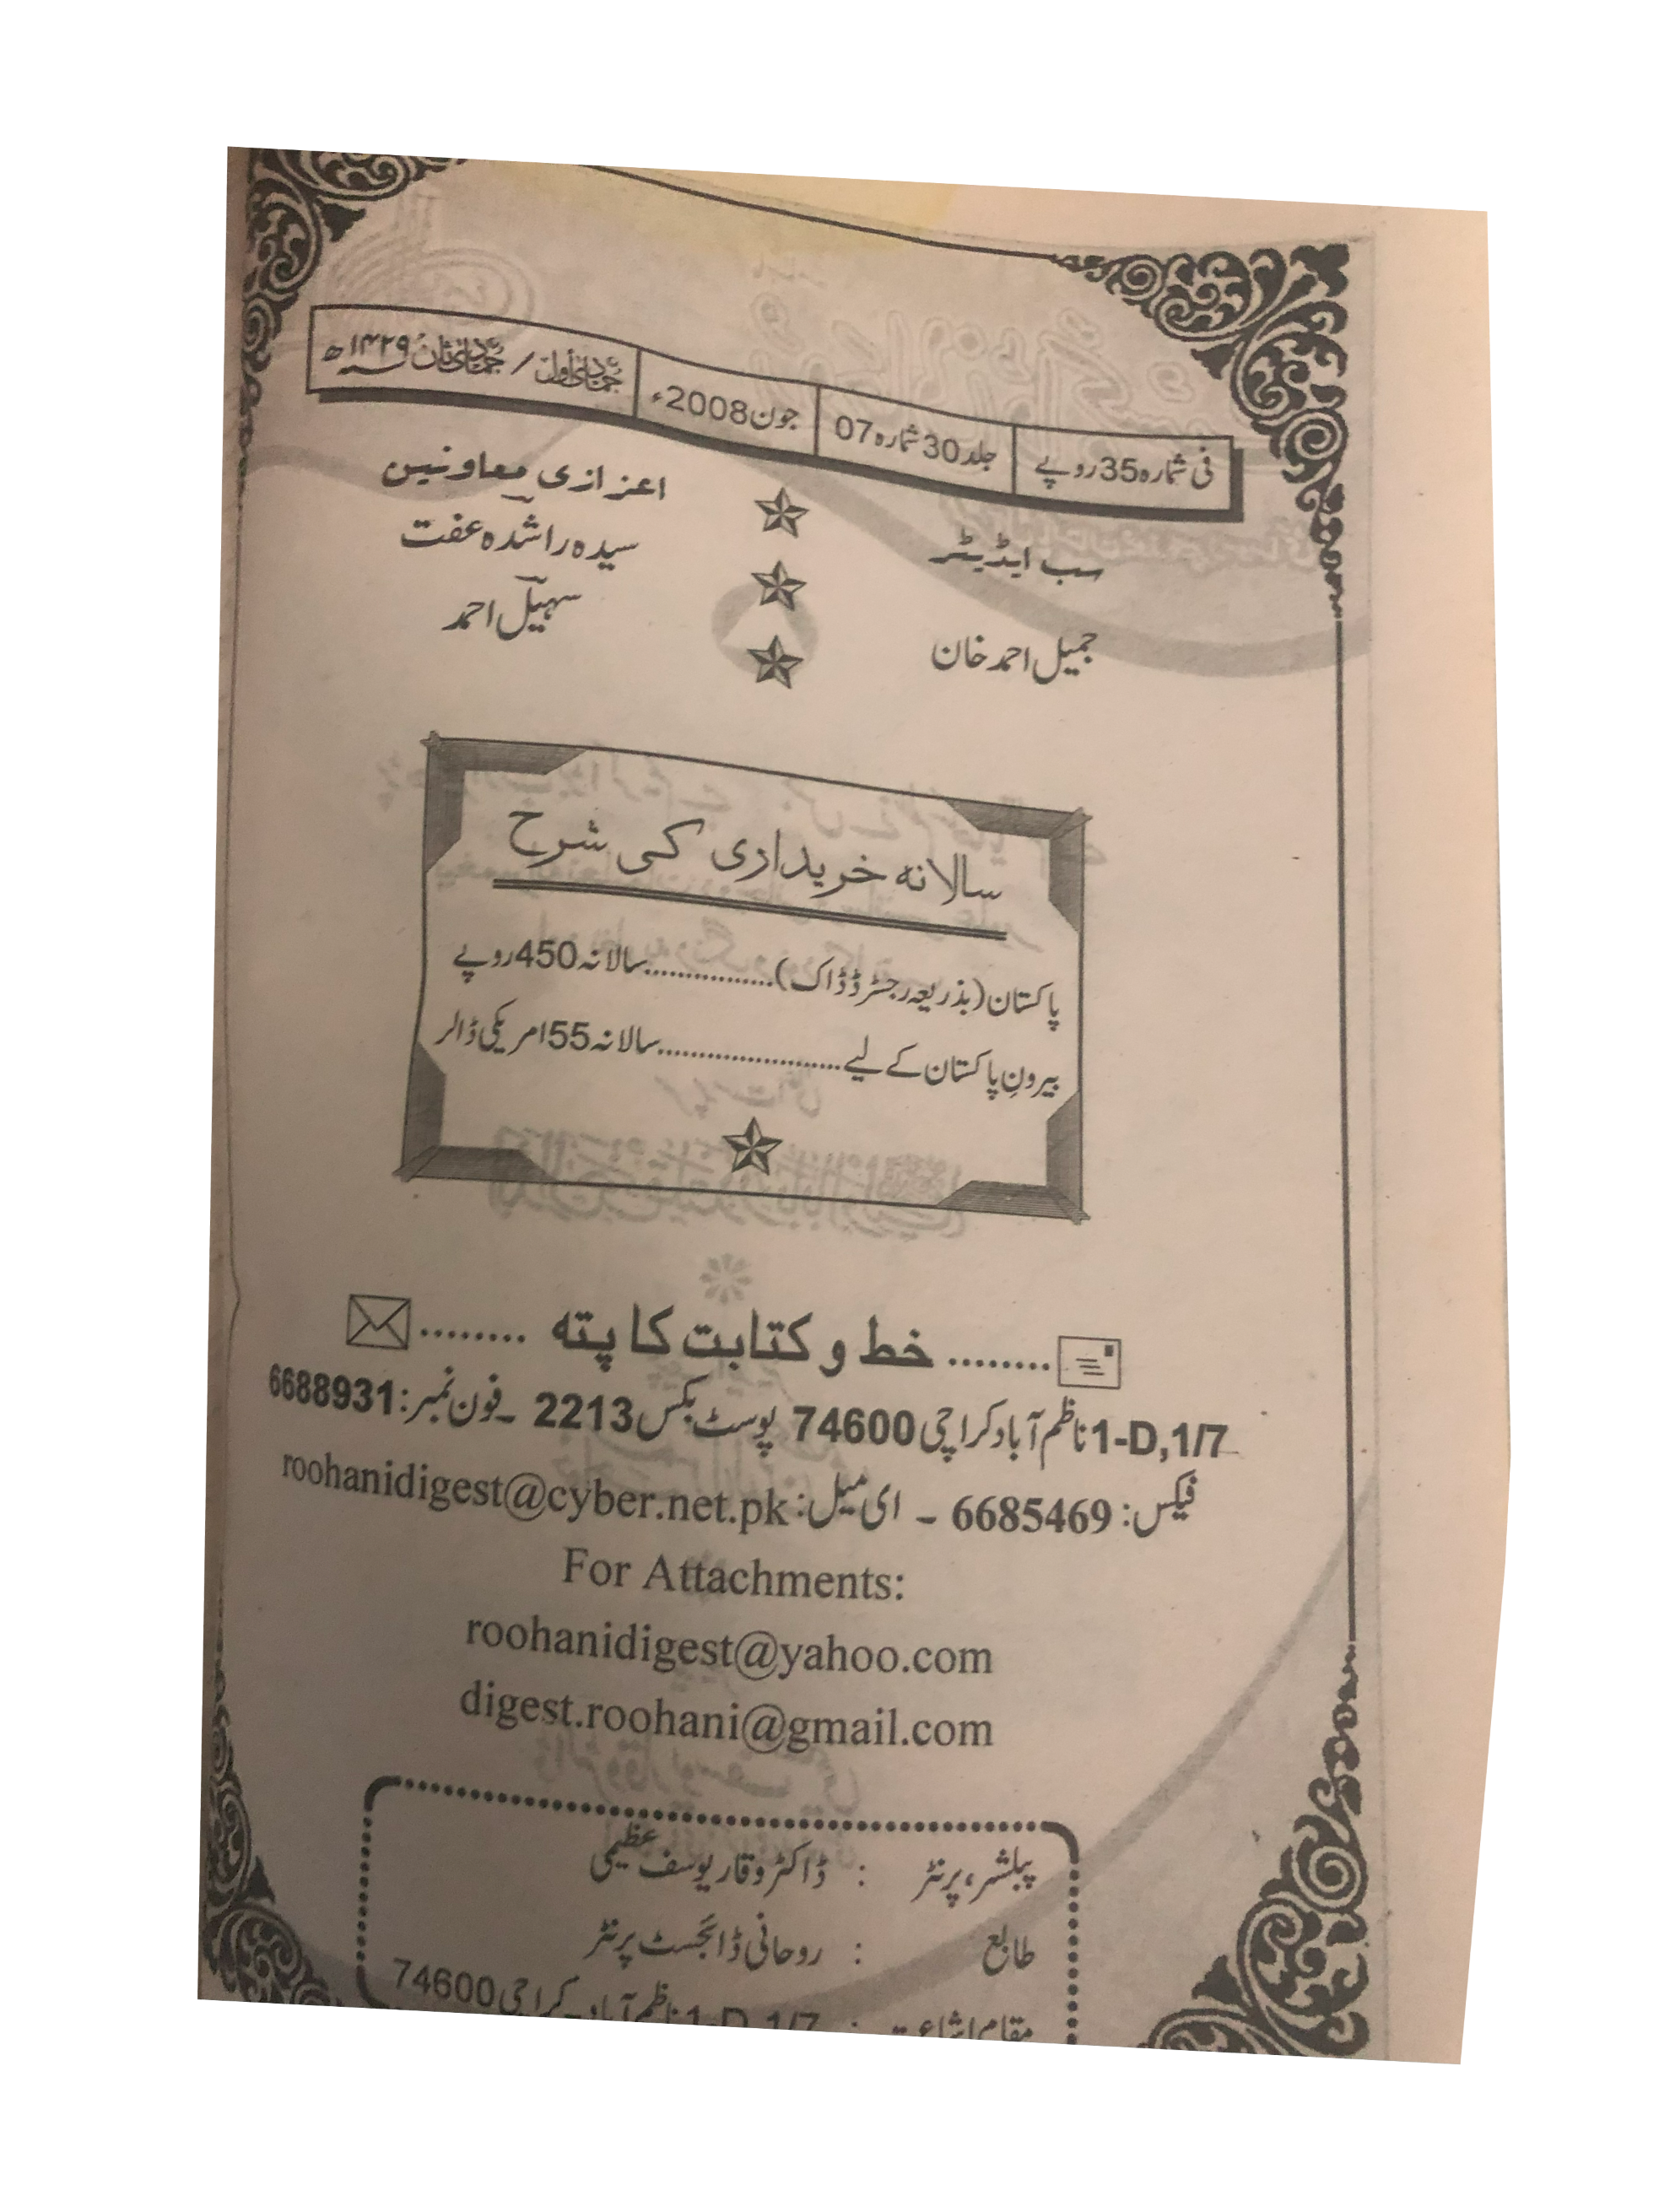 فی شمارہ 35 روپے
جلد 30 شمارہ 07
جون 2008ء
جمادی الاول / جمادی الثانی ۱۴۲۹ھ
سب ایڈیٹر
جمیل احمد خان
اعزازی معاونین
سیدہ راشدہ عفت
سہیل احمد
سالانہ خریداری کی شرح
پاکستان (بذریعہ رجسٹرڈ ڈاک)................سالانہ 450 روپے
بیرونِ پاکستان کے لیے......................سالانہ 55 امریکی ڈالر
........ خط و کتابت کا پتہ ........
1-D,1/7 ناظم آباد کراچی 74600 پوسٹ بکس 2213 ۔ فون نمبر: 6688931
فیکس: 6685469 ۔ ای میل: roohanidigest@cyber.net.pk
For Attachments:
roohanidigest@yahoo.com
digest.roohani@gmail.com
پبلشر، پرنٹر : ڈاکٹر وقار یوسف عظیمی
طابع : روحانی ڈائجسٹ پرنٹر
مقام اشاعت : 1-D, 1/7 ناظم آباد۔ کراچی 74600